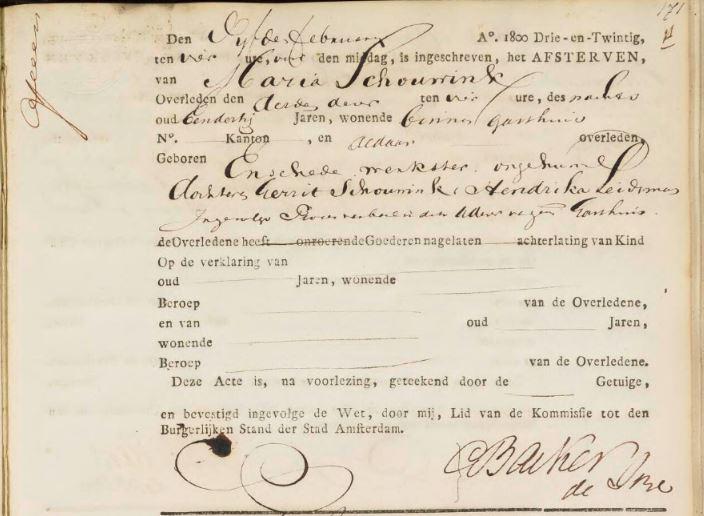 171
11
Den Vyfde february Aº. 1800 Drie-en-Twintig,
ten vier ure, voor den middag, is ingeschreven, het AFSTERVEN,
van Maria Schourrink
Overleden den derde deezer ten vier ure, des nachts
oud Eendertig Jaren, wonende binnen Gasthuis
Nº. Kanton , en aldaar overleden,
Geboren Enschede, werkster, ongehuwd
dochter v Gerrit Schourrink & Hendrika
Ingevolge Procesverbaal Gasthuis.
de Overledene heeft onroerende Goederen nagelaten achterlating van Kind
Op de verklaring van
oud Jaren, wonende
Beroep van de Overledene,
en van oud Jaren,
wonende
Beroep van de Overledene.
Deze Acte is, na voorlezing, geteekend door de Getuige,
en bevestigd ingevolge de Wet, door mij, Lid van de Kommissie tot den
Burgerlijken Stand der Stad Amsterdam.
Backer